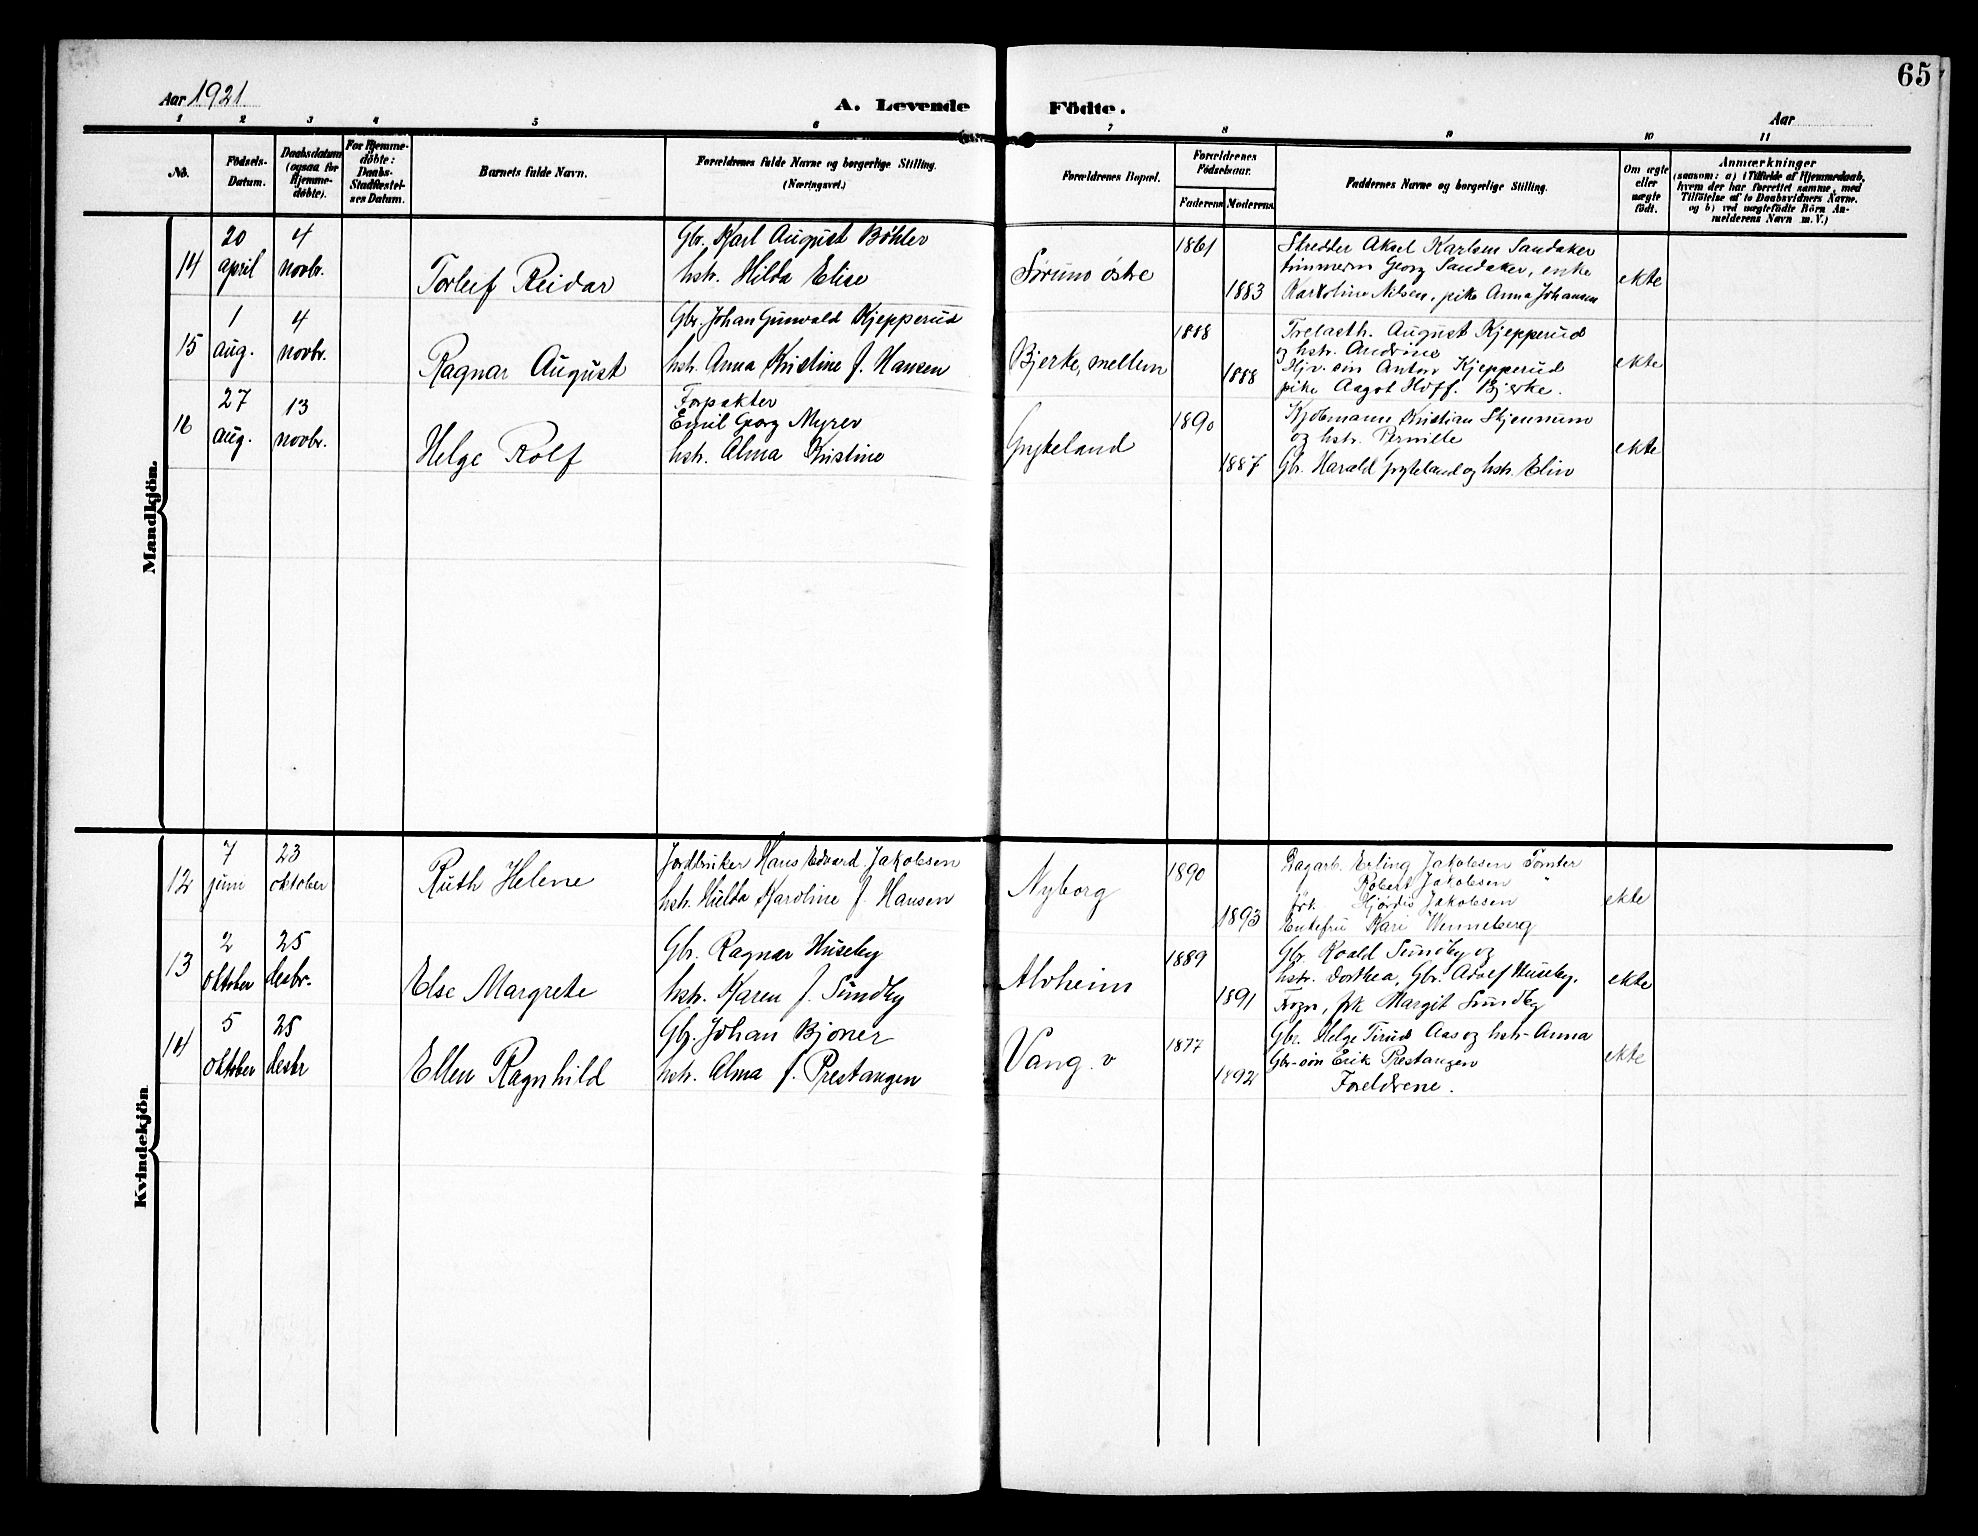 65
Aar 1921
A. Levende Födte.
Aar
1 2 3 4 5 6 7 8 9 10 11
No.
Födsels-
Datum.
Daabsdatum
(ogsaa for
Hjemme-
döbte).
For Hjemme-
döbte:
Daabs-
Stadfæstel-
ses Datum.
Barnets fulde Navn.
Forældrenes fulde Navne og borgerlige Stilling.
(Næringsvei.)
Forældrenes Bopæl.
Forældrenes
Födselsaar.
Faderens Moderens
Faddernes Navne og borgerlige Stilling.
Om ægte
eller
uægte
födt.
Anmærkninger
(saasom: a) i Tilfælde af Hjemmedaab,
hvem der har forrettet samme, med
Tilföielse af to Daabsvidners Navne,
og b) ved uægtefödte Börn An-
melderens Navn m. V.)
Mandkjön.
14
20
april
4
novbr.
Torleif Reidar
Gbr. Karl August Böhler
hstr. Hilda Elise
Sørum østre
1861
1883
Skredder Aksel Karlsen Sandaker
tømmerm Georg Sandaker, enke
Karoline Nilsen, pike Anna Johansen
ekte
15
1
aug.
4
novbr.
Ragnar August
Gbr. Johan Gunvald Kjepperud
hstr. Anna Kristine f. Hansen
Bjerke, mellem
1888
1888
Trelasth. August Kjepperud
og hstr. Andrine
Gbr. søn Anton Kjepperud
pike Aagot Hoff. Bjerke.
ekte
16
27
aug.
13
novbr.
Helge Rolf
Forpakter
Emil Georg Myrer
hstr. Alma Kristine
Gryteland
1890
1887
Kjøbmann Kristian Skjennum
og hstr. Pernille
Gbr. Harald Gryteland og hstr. Elin
ekte
Kvindekjön
12
7
juni
23
oktober
Ruth Helene
Jordbruker Hans Edvard Jakobsen
hstr. Hulda Karoline f. Hansen
Nyborg
1890
1893
Dagarb. Erling Jakobsen Tomter
Robert Jakobsen "
frk. Hjørdis Jakobsen
Enkefru Kari Wenneberg
ekte
13
2
oktober
25
desbr.
Else Margrete
Gbr. Ragnar Huseby
hstr. Karen f. Sundby
Alvheim
1889
1891
Gbr. Roald Sundby og
hstr. Dorthea, Gbr. Adolf Huseby,
Fogn, frk Margit Sundby
ekte
14
5
oktober
25
desbr
Ellen Ragnhild
Gbr. Johan Bjoner
hstr. Alma f. Prestangen
Vang. v
1877
1892
Gbr. Helge Tirud Aas og hstr. Anna
Gbr-søn Erik Prestangen
Foreldrene.
ekte